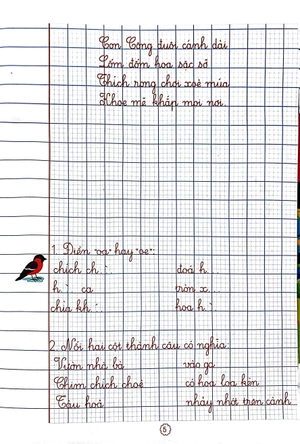 Con Công đuôi cánh dài
Lốm đốm hoa sặc sỡ
Thích rong chơi xoè múa
Khoe mẽ khắp mọi nơi.
1. Điền "oa" hay "oe":
chích ch... đoá h...
h... ca tròn x...
chìa kh... hoạ h...
2. Nối hai cột thành câu có nghĩa
Vườn nhà bà vào ga
Chim chích choè có hoa loa kèn
Tàu hoả nhảy nhót trên cành
5